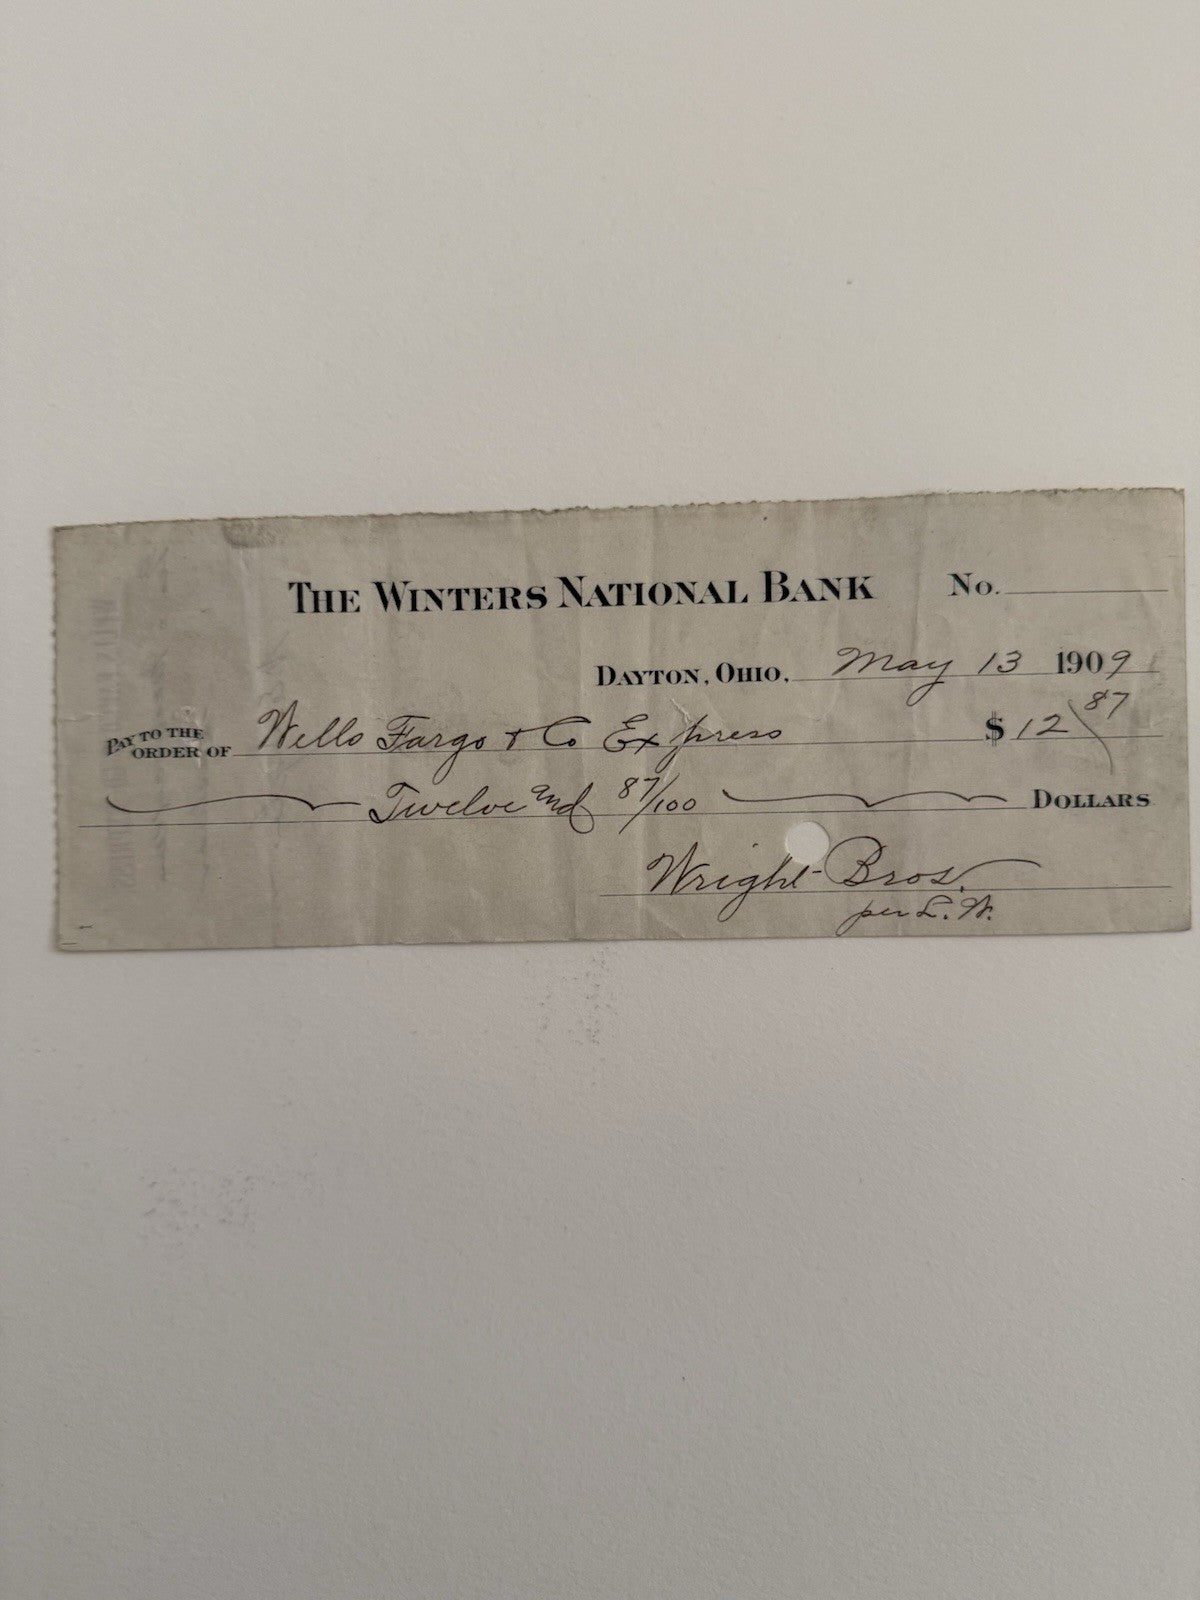 THE WINTERS NATIONAL BANK No.
DAYTON, OHIO, May 13 1909
PAY TO THE ORDER OF Wells Fargo & Co Express $ 12 87
Twelve and 87/100 DOLLARS
Wright Bros.
per L. W.